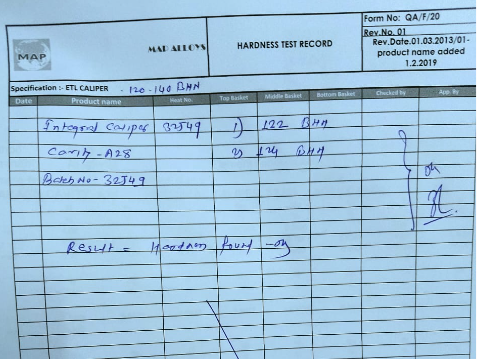 Form No: QA/F/20
MAP
MAP ALLOYS
HARDNESS TEST RECORD
Rev.No. 01
Rev.Date.01.03.2013/01-
product name added
1.2.2019
Specification :- ETL CALIPER - 120-140 BHN
Date Product name Heat No. Top Basket Middle Basket Bottom Basket Checked by App. By
Integral Caliper 32J49 1) 122 BHN
Cavity - A28 2) 124 BHN
Batch No - 32J49
Result = Hardness found - ok
ok